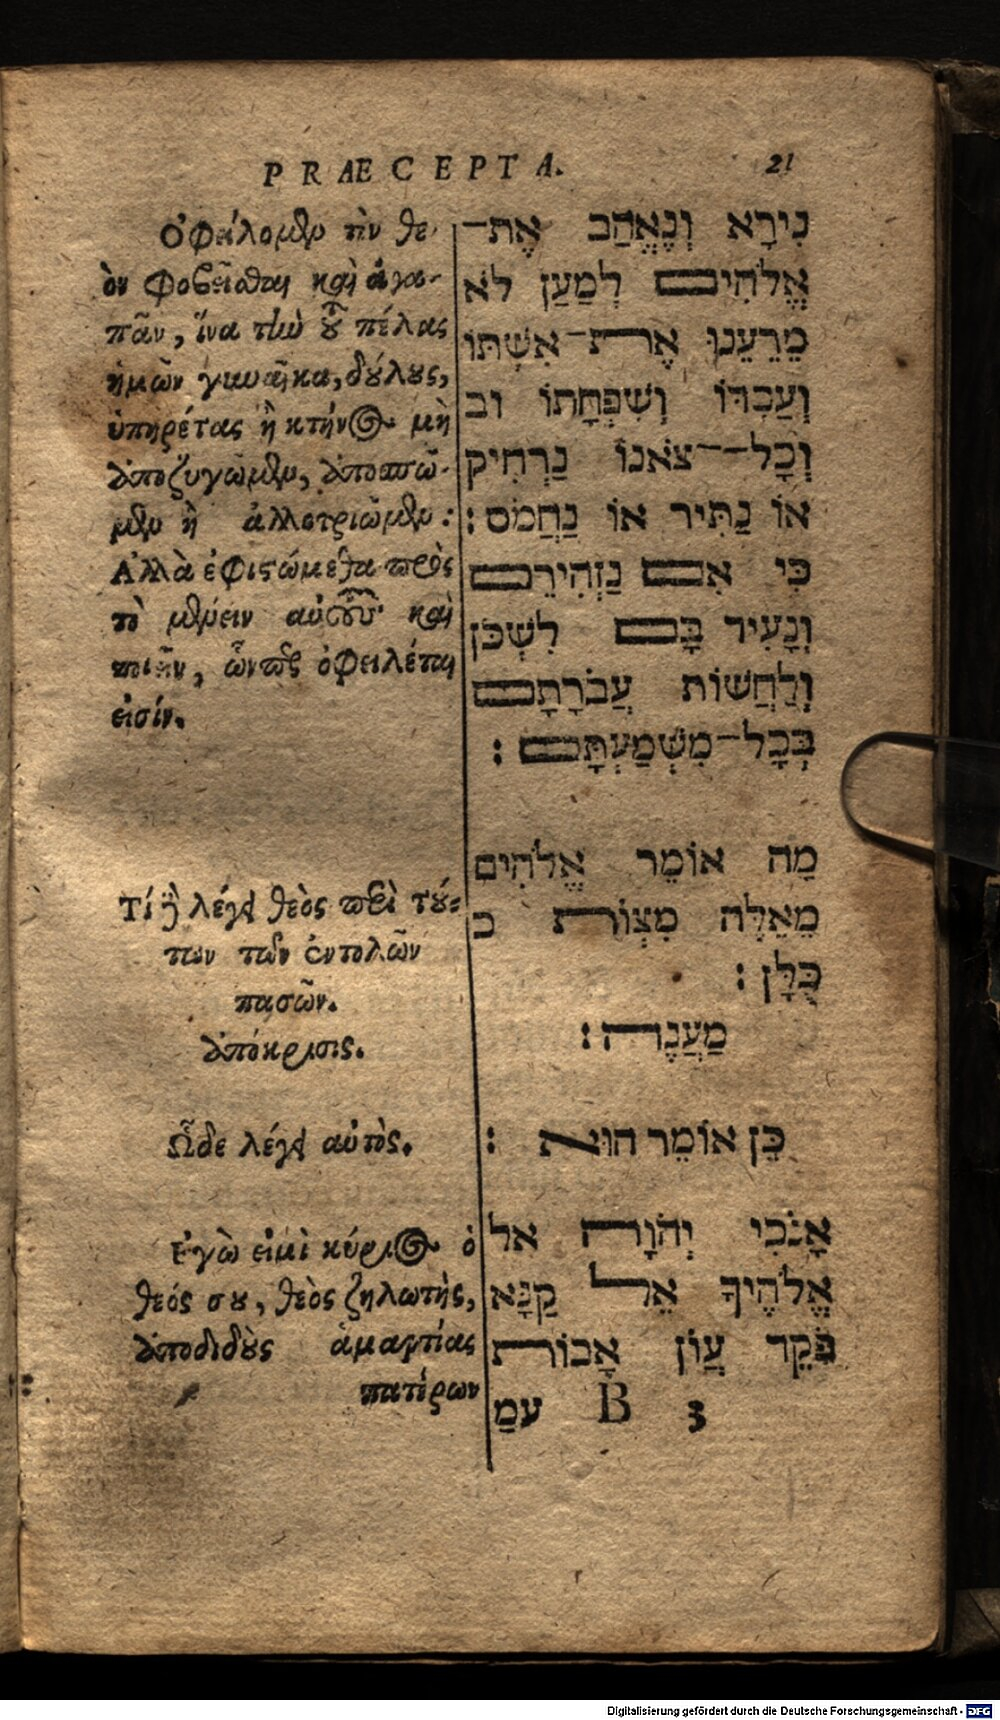 PRAECEPTA. 21
Ὀφείλομεν τὸν θε-
ὸν φοβεῖσθαι καὶ ἀγα-
πᾶν, ἵνα τὴν τοῦ πέλας
ἡμῶν γυναῖκα, δούλους,
ὑπηρέτας ἢ κτῆνος μὴ
ἀποζυγῶμεν, ἀποσπῶ-
μεν ἢ ἀλλοτριῶμεν:
Αλλὰ ἐφιστώμεθα πρὸς
τὸ μένειν αὐτοῦ καὶ
ποιεῖν, ὧντος ὀφειλέται
εἰσίν.
Τί δὲ λέγει θεὸς περὶ τού-
των τῶν ἐντολῶν
πασῶν.
ἀπόκρισις.
Ὧδε λέγει αὐτὸς.
Εγὼ εἰμὶ κύριος ὁ
θεός σου, θεὸς ζηλωτὴς,
ἀποδιδοὺς ἁμαρτίας
πατέρων
נִירָא וְנֶאֱהַב אֶת־
אֱלֹהִים לְמַעַן לֹא
מֵרֵעֵנוּ אֶת־אִשְׁתּוֹ
וְעַבְדּוֹ וְשִׁפְחָתוֹ וב
וְכָל־צֹאנוֹ נַרְחִיק
אוֹ נַתִּיר אוֹ נַחֲמֹס:
כִּי אִם נַזְהִירֵם
וְנָעִיר בָּם לִשְׁכֹּן
וְלַחֲשׂוֹת עֲבֹרָתָם
בְּכָל־מִשְׁמַעְתָּם:
מַה אוֹמֵר אֱלֹהִים
מֵאֵלֶּה מִצְוֹת כ
כֻּלָּן:
מַעֲנֶה:
כֵּן אוֹמֵר הוּא:
אָנֹכִי יְהֹוָה אל
אֱלֹהֶיךָ אֵל קַנָּא
פֹּקֵד עֲוֹן אָבוֹת
עמַ B 3
Digitalisierung gefördert durch die Deutsche Forschungsgemeinschaft - DFG